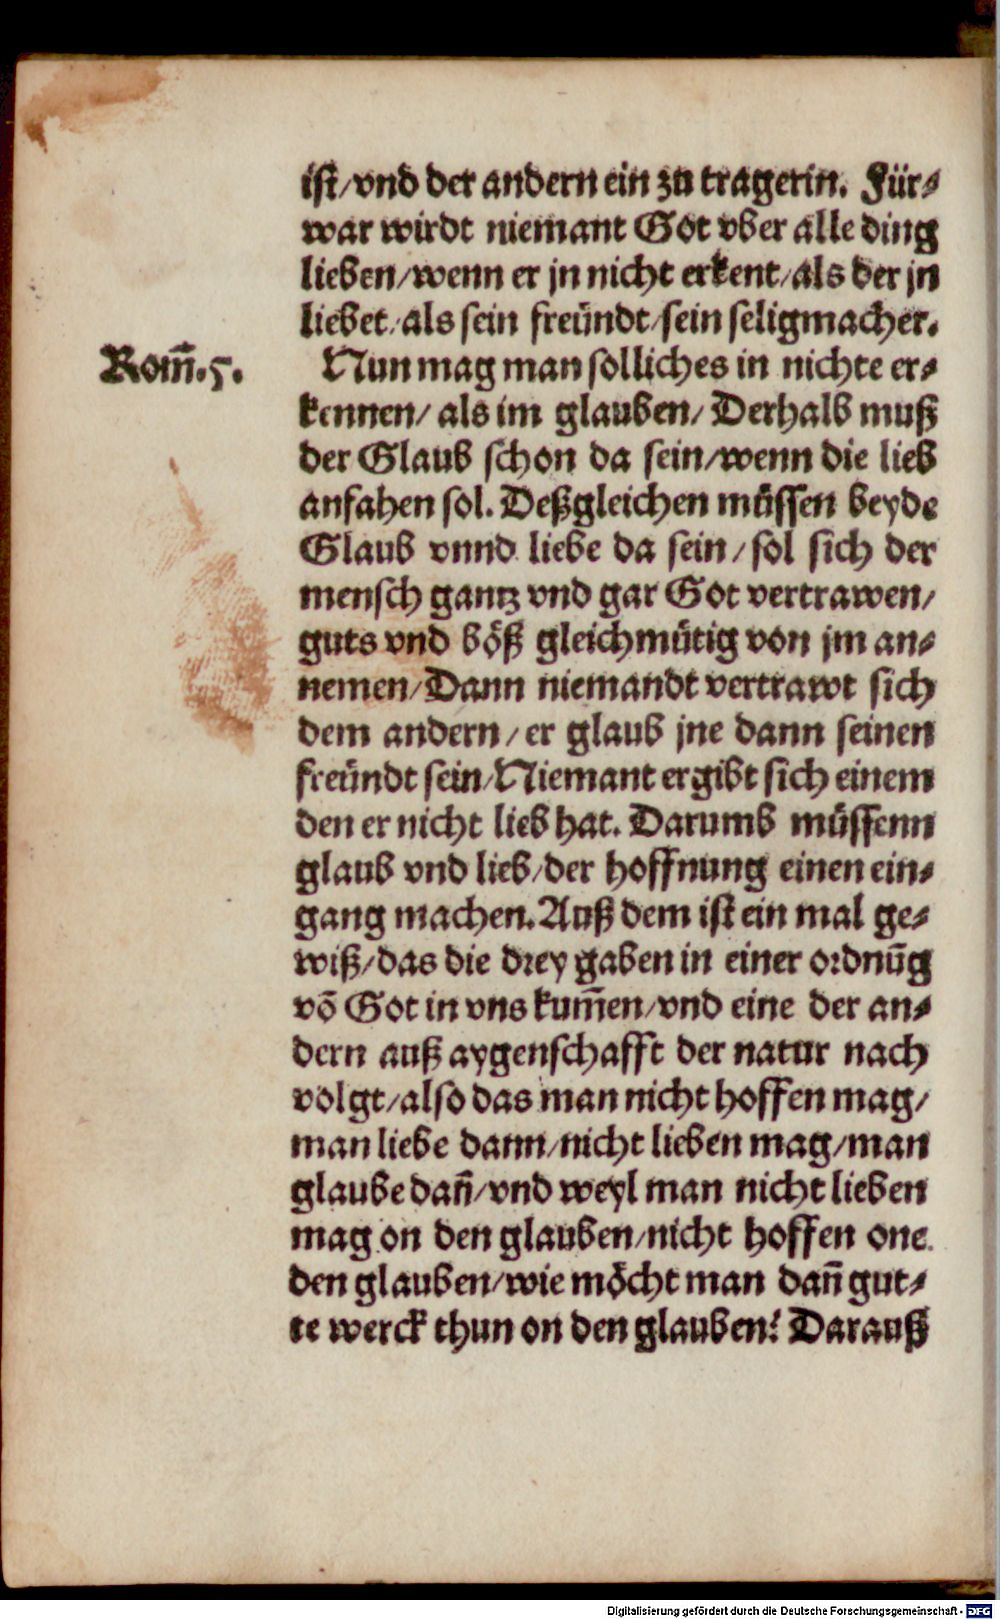 ist/ vnd der andern ein zu tragerin. Für⸗
war wirdt niemant Got vber alle ding
lieben/ wenn er jn nicht erkent/ als der jn
liebet/ als sein freündt/ sein seligmacher.
Rom̃. 5.
Nun mag man solliches in nichte er⸗
kennen/ als im glauben/ Derhalb muß
der Glaub schon da sein/ wenn die lieb
anfahen sol. Deßgleichen müssen beyde
Glaub vnnd liebe da sein/ sol sich der
mensch gantz vnd gar Got vertrawen/
guts vnd böß gleichmütig von jm an⸗
nemen/ Dann niemandt vertrawt sich
dem andern/ er glaub jne dann seinen
freündt sein/ Niemant ergibt sich einem
den er nicht lieb hat. Darumb müssenn
glaub vnd lieb/ der hoffnung einen ein⸗
gang machen. Auß dem ist ein mal ge⸗
wiß/ das die drey gaben in einer ordnūg
vō Got in vns kum̄en/ vnd eine der an⸗
dern auß aygenschafft der natur nach
volgt/ also das man nicht hoffen mag/
man liebe dann/ nicht lieben mag/ man
glaube dañ/ vnd weyl man nicht lieben
mag on den glauben/ nicht hoffen one
den glauben/ wie möcht man dañ gut⸗
te werck thun on den glauben? Darauß
Digitalisierung gefördert durch die Deutsche Forschungsgemeinschaft - DFG